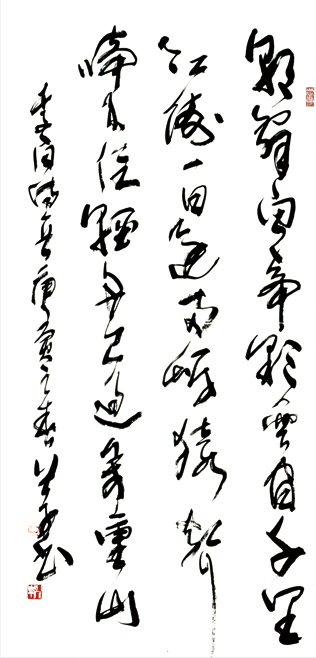 朝辭白帝彩雲間千里
江陵一日還兩岸猿聲
啼不住輕舟已過萬重山
李白詩庚寅之春书